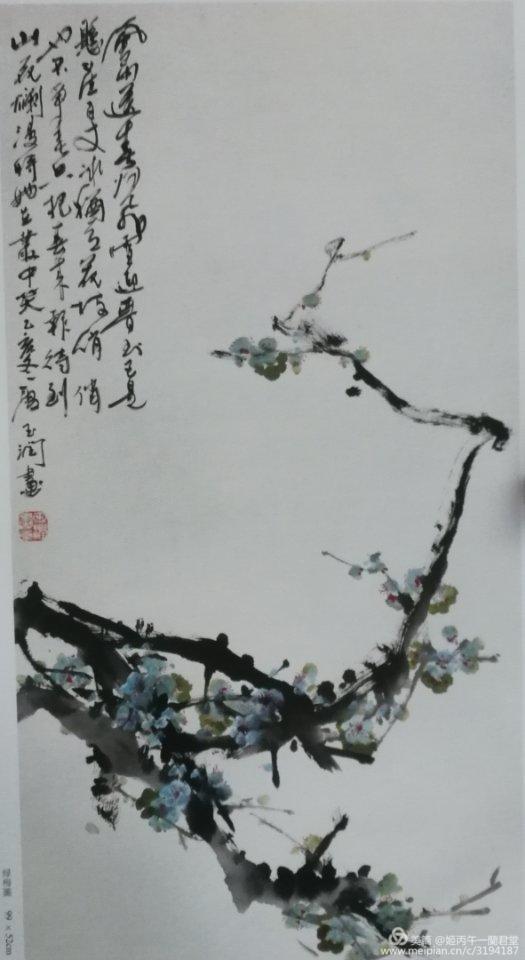 風雨送春歸飛雪迎春到已是
懸崖百丈冰猶有花枝俏俏
也不爭春只把春來報待到
山花爛漫時她在叢中笑 乙亥 玉潤畫
绿梅圖 99×52cm
美篇 @姬丙午一蘭君堂
www.meipian.cn/c/3194187